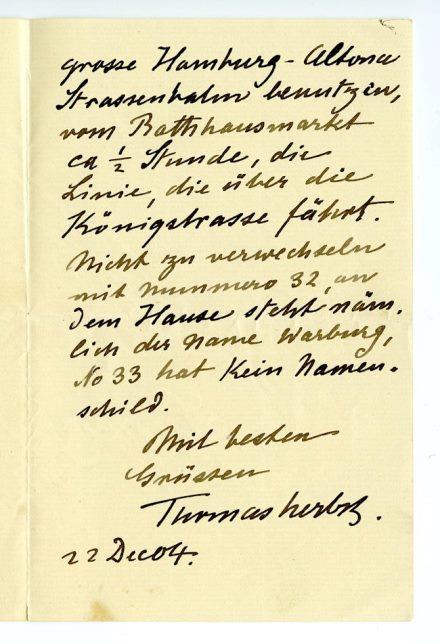 grosse Hamburg-Altona
Strassenbahn benutzen,
vom Rathhausmarkt
ca ½ Stunde, die
Linie, die über die
Königstrasse fährt.
Nicht zu verwechseln
mit nummero 32, an
dem Hause steht näm-
lich der Name Warburg,
No 33 hat Kein Namen-
schild.
Mit besten
Grüssen
Thomas Herbst.
22 Dec 04.